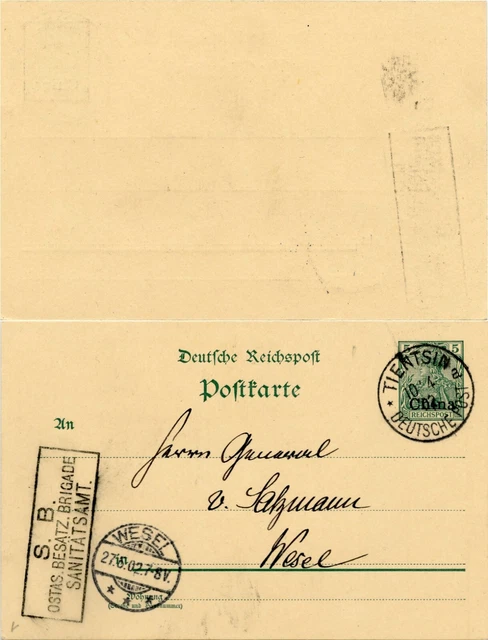 Deutsche Reichspost
Postkarte
5 5
TIENTSIN a
10 4 02
China
REICHSPOST
* DEUTSCHE POST
An
Herrn General
v. Salzmann
Wesel
S. B.
OSTAS. BESATZ. BRIGADE
SANITÄTSAMT.
WESEL
27.5.02.7-8V.
* * *
Wohnung